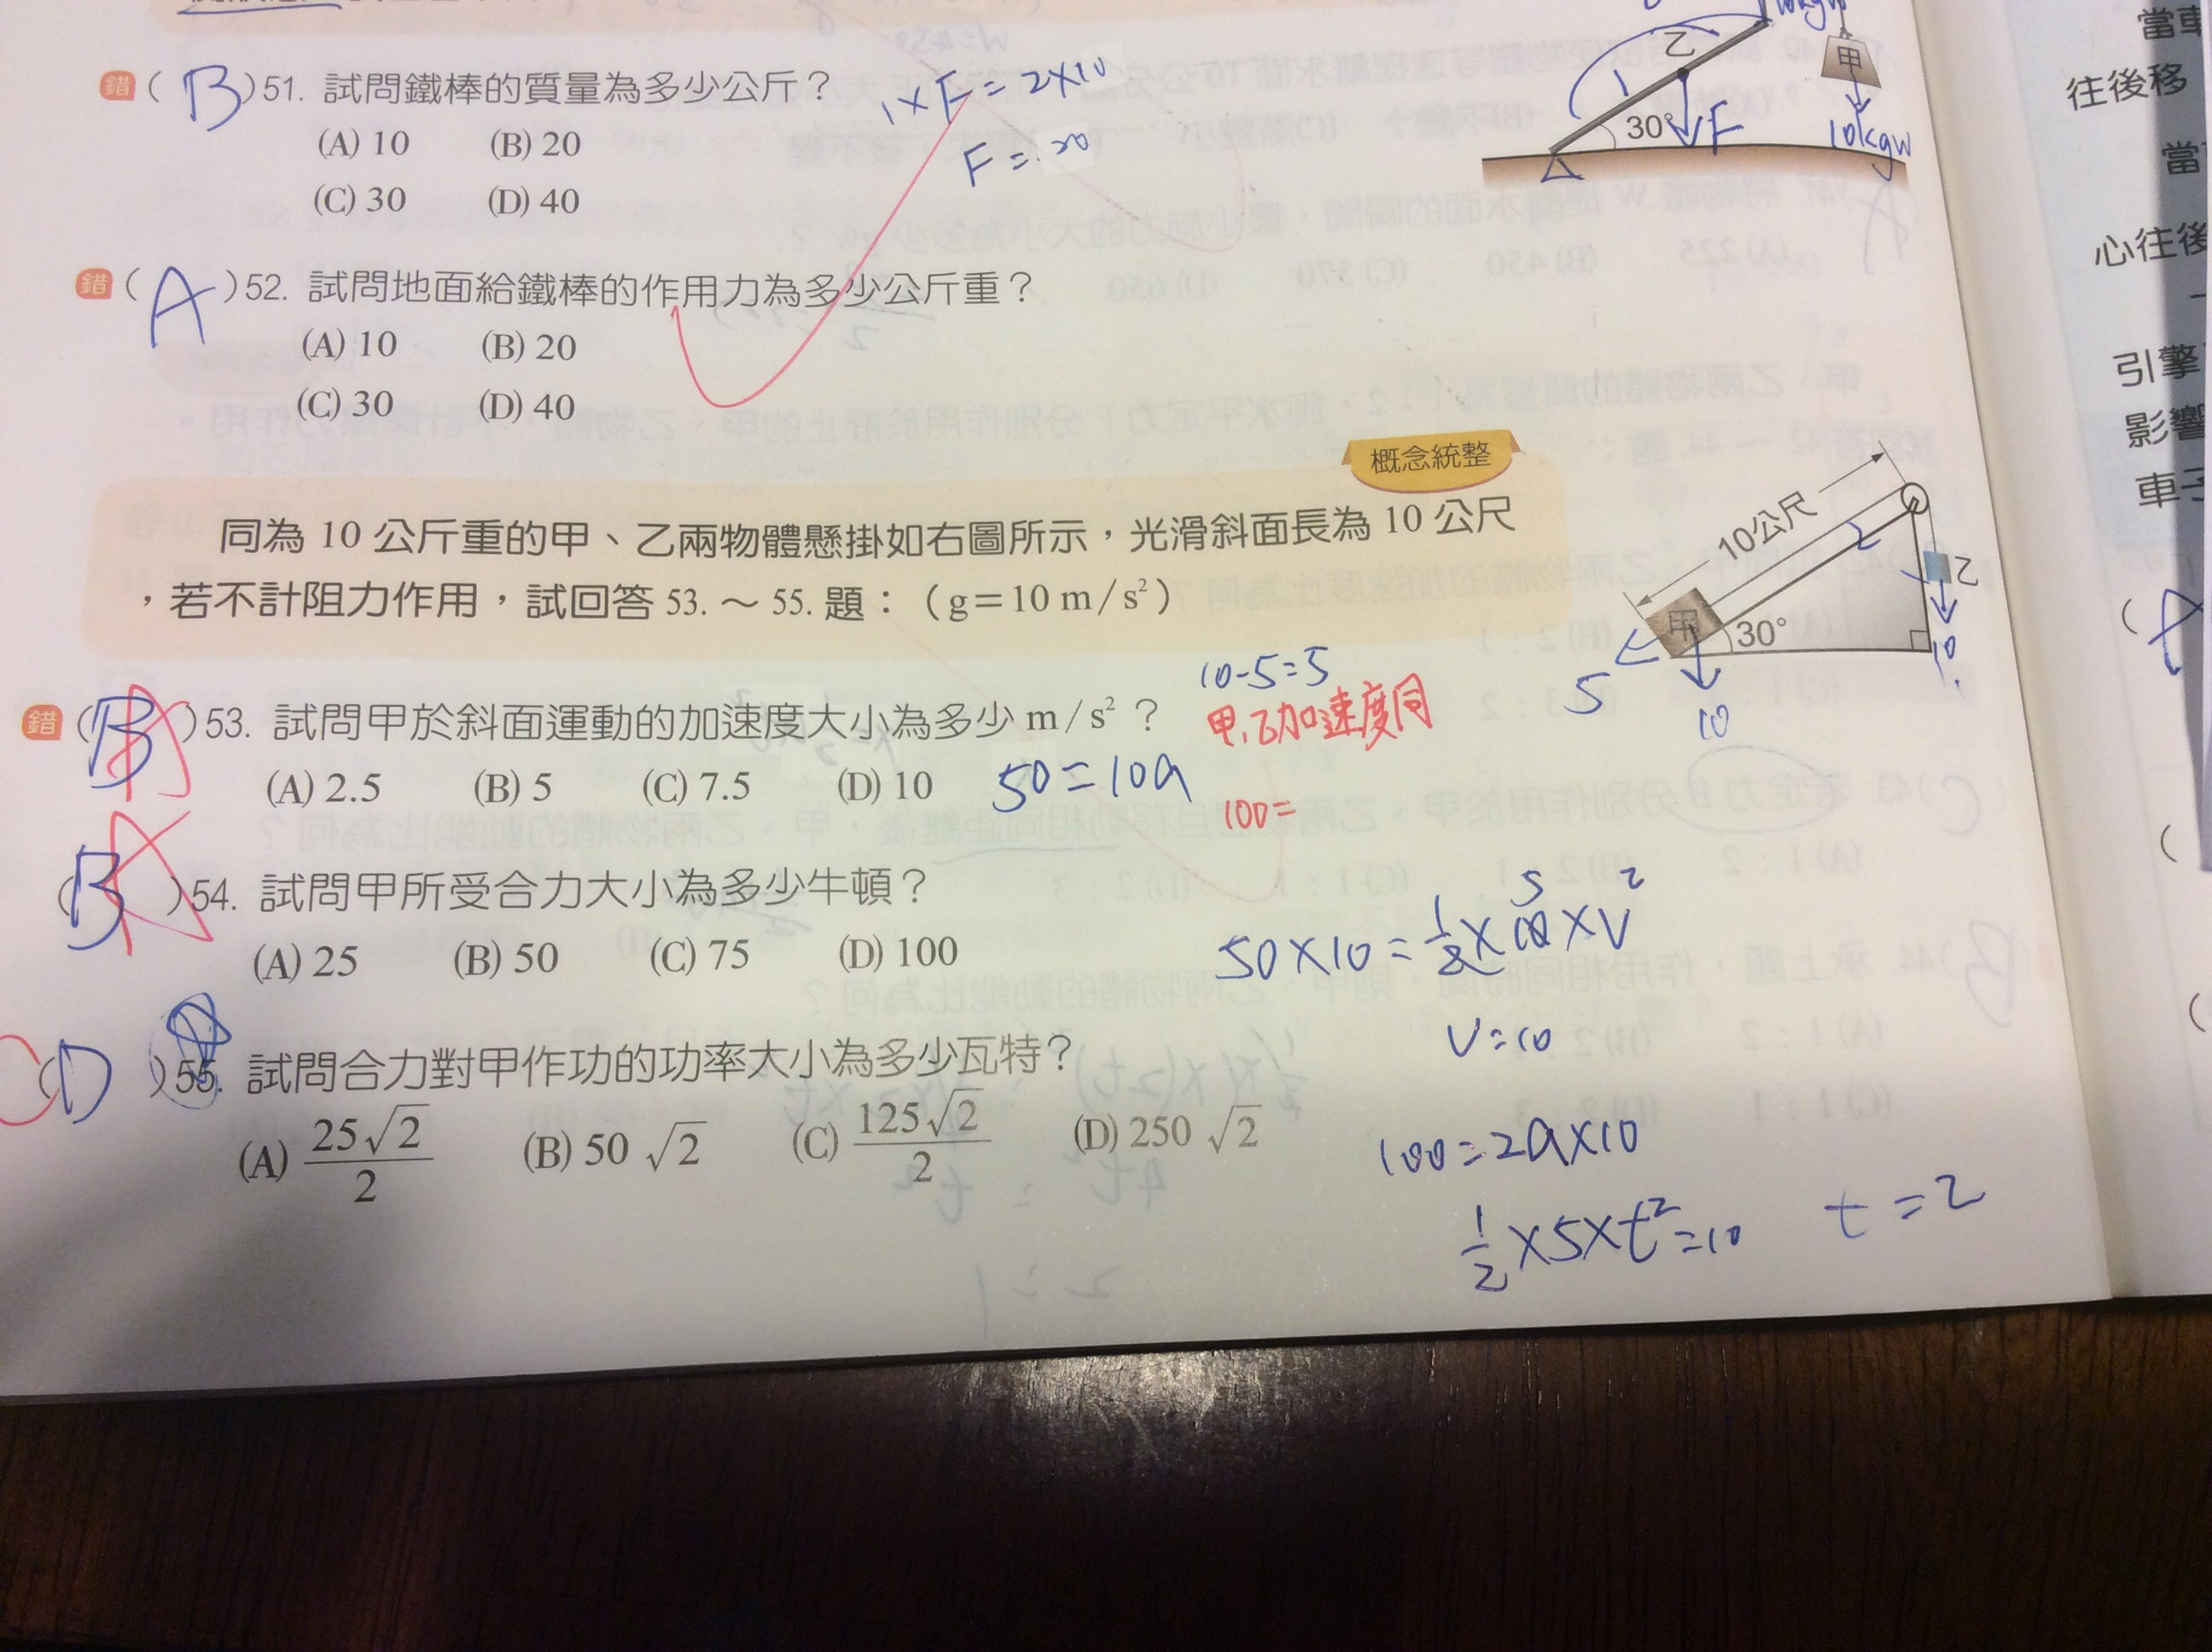 W=450
10kgw
乙
1
30°
F
甲
10kgw
錯 ( B )51. 試問鐵棒的質量為多少公斤？
(A) 10 (B) 20
(C) 30 (D) 40
1×F=2×10
F=20
錯 ( A )52. 試問地面給鐵棒的作用力為多少公斤重？
(A) 10 (B) 20
(C) 30 (D) 40
概念統整
同為 10 公斤重的甲、乙兩物體懸掛如右圖所示，光滑斜面長為 10 公尺
，若不計阻力作用，試回答 53.～ 55. 題：（g＝10 m/s²）
10公尺
2
1
乙
10
甲
30°
5
10
錯 ( B A )53. 試問甲於斜面運動的加速度大小為多少 m/s²？
10-5=5
甲、乙加速度同
(A) 2.5 (B) 5 (C) 7.5 (D) 10
50=10a
100=
( B A )54. 試問甲所受合力大小為多少牛頓？
(A) 25 (B) 50 (C) 75 (D) 100
50×10=1/2×10×V²
5
V=10
C ( D )55. 試問合力對甲作功的功率大小為多少瓦特？
(A) 25√2/2 (B) 50√2 (C) 125√2/2 (D) 250√2
100=2a×10
1/2×5×t²=10 t=2
當車
往後移
當
心往後
引擎
影響
車子